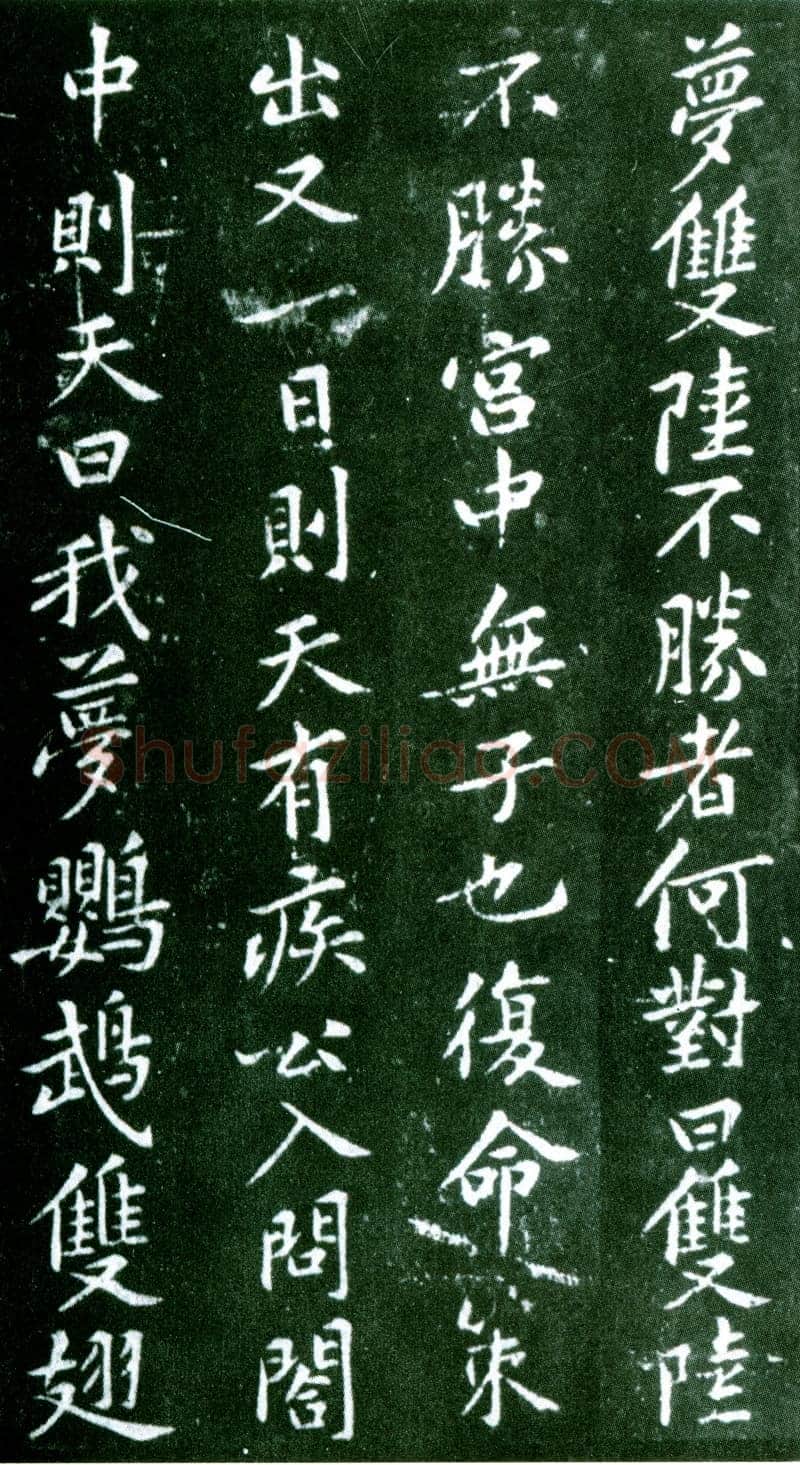 夢雙陸不勝者何對曰雙陸
不勝宮中無子也復命策
出又一日則天有疾公入問閤
中則天曰我夢鸚鵡雙翅
Shufaziliao.COM